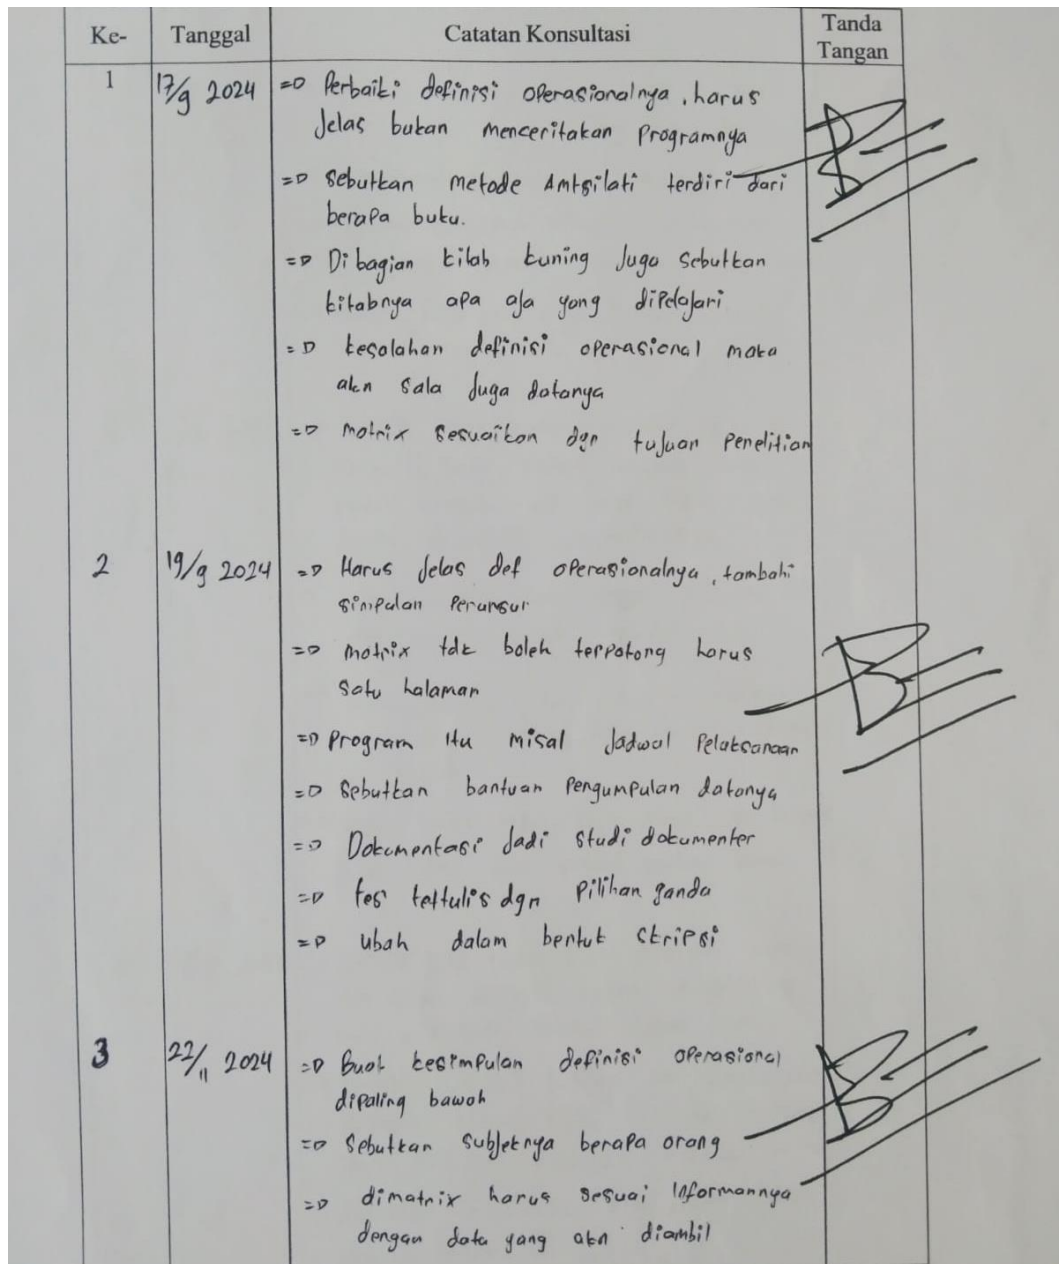 Ke- Tanggal Catatan Konsultasi Tanda Tangan
1 17/9 2024 => Perbaiki definisi operasionalnya, harus
Jelas bukan menceritakan Programnya
=> Sebutkan metode Amtsilati terdiri dari
berapa buku.
=> Di bagian kitab kuning Juga Sebutkan
kitabnya apa aja yang dipelajari
=> kesalahan definisi operasional maka
akn sala Juga datanya
=> matrix sesuaikan dgn tujuan Penelitian
2 19/9 2024 => Harus Jelas def operasionalnya, tambahi
simpulan Perunsur
=> matrix tdk boleh terpotong harus
satu halaman
=> Program itu misal Jadwal Pelaksanaan
=> Sebutkan bantuan Pengumpulan datanya
=> Dokumentasi Jadi Studi dokumenter
=> tes tertulis dgn Pilihan ganda
=> ubah dalam bentuk skripsi
3 22/11 2024 => Buat kesimpulan definisi operasional
dipaling bawah
=> Sebutkan Subjeknya berapa orang
=> dimatrix harus sesuai Informannya
dengan data yang akn diambil